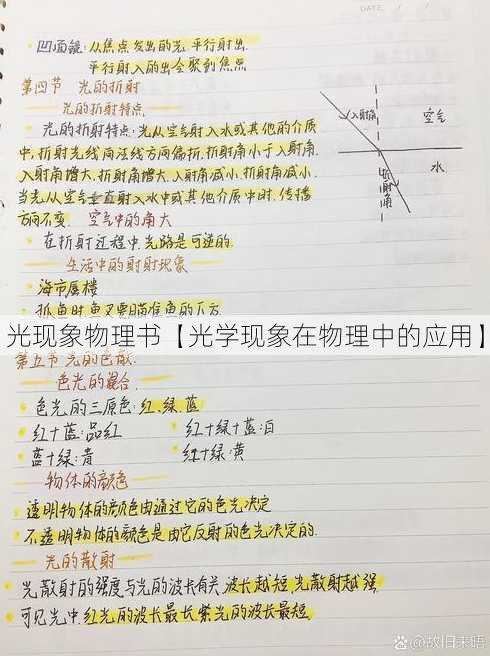 DATE / /
凹面镜:从焦点发出的光,平行射出.
平行射入的出会聚到焦点
第四节 光的折射
光的折射特点
光的折射特点:光从空气射入水或其他的介质
中,折射光线向法线方向偏折.折射角小于入射角.
入射角增大.折射角增大.入射角减小.折射角减小.
当光从空气垂直射入水中或其他介质中时.传播
方向不变. 空气中的角大
在折射过程中.光路是可逆的.
入射角
空气
水
折射角
生活中的射射现象
海市蜃楼
抓鱼时,鱼叉要瞄准鱼的下方
光现象物理书【光学现象在物理中的应用】
第五节 光的色散.
色光的混合.
色光的三原色:红.绿.蓝
红+蓝:品红
红+绿+蓝:白
蓝+绿:青
红+绿:黄
物体的颜色
透明物体的颜色由通过它的色光决定
不透明物体的颜色是由它反射的色光决定的.
光的散射
光散射的强度与光的波长有关,波长越短,光散射越强.
可见光中.红光的波长最长.紫光的波长最短.
@故旧未晤